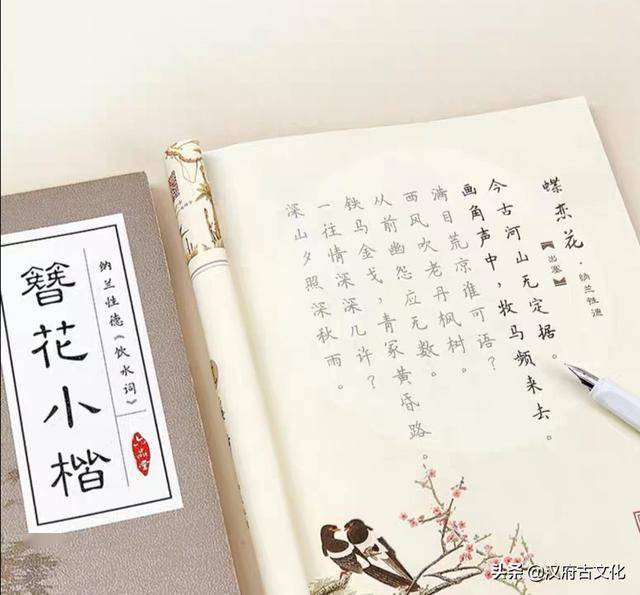 纳兰性德《饮水词》
簪花小楷
六品堂
蝶恋花·纳兰性德
【出塞】
今古河山无定据。
画角声中,牧马频来去。
满目荒凉谁可语?
西风吹老丹枫树。
从前幽怨应无数。
铁马金戈,青冢黄昏路。
一往情深深几许?
深山夕照深秋雨。
头条 @汉府古文化